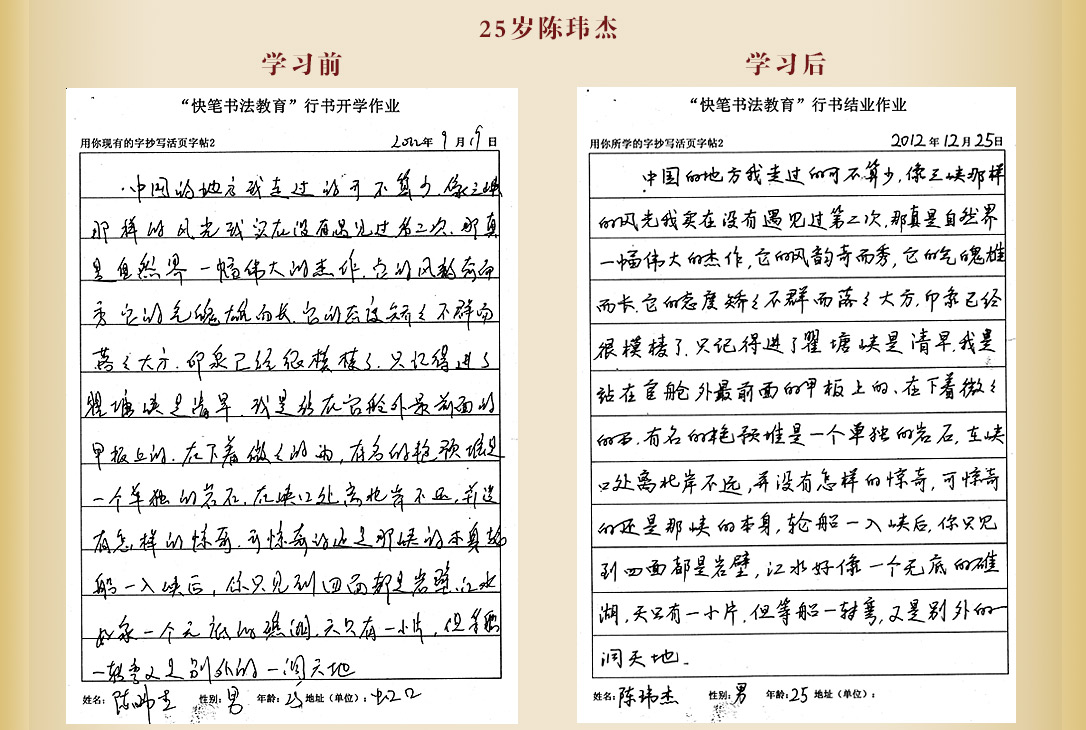 25岁陈玮杰
学习前
学习后
“快笔书法教育”行书开学作业
用你现有的字抄写活页字帖2
年9月19日
中国的地方我走过的可不算少,像三峡
那样的风光我实在没有遇见过第二次,那真
是自然界一幅伟大的杰作,它的风韵奇而
秀,它的气魄雄而长,它的态度矫々不群而
落々大方,印象已经很模棱了,只记得进了
瞿塘峡是清早,我是站在官舱外最前面的
甲板上的,在下着微々的雨,有名的艳预堆是
一个单独的岩石,在峡口处离北岸不远,并没
有怎样的惊奇,可惊奇的还是那峡的本身,轮
船一入峡后,你只见到四面都是岩壁,江水
好象一个无底的礁湖,天只有一小片,但等船
一转弯又是别外的一洞天地
姓名:陈玮杰 性别:男 年龄:25 地址(单位):
“快笔书法教育”行书结业作业
用你所学的字抄写活页字帖2
2012年12月25日
中国的地方我走过的可不算少,像三峡那样
的风光我实在没有遇见过第二次,那真是自然界
一幅伟大的杰作,它的风韵奇而秀,它的气魄雄
而长,它的态度矫々不群而落々大方,印象已经
很模棱了,只记得进了瞿塘峡是清早,我是
站在官舱外最前面的甲板上的,在下着微々
的雨,有名的艳预堆是一个单独的岩石,在峡
口处离北岸不远,并没有怎样的惊奇,可惊奇
的还是那峡的本身,轮船一入峡后,你只见
到四面都是岩壁,江水好像一个无底的礁
湖,天只有一小片,但等船一转弯,又是别外的一
洞天地.
姓名:陈玮杰 性别:男 年龄:25 地址(单位):